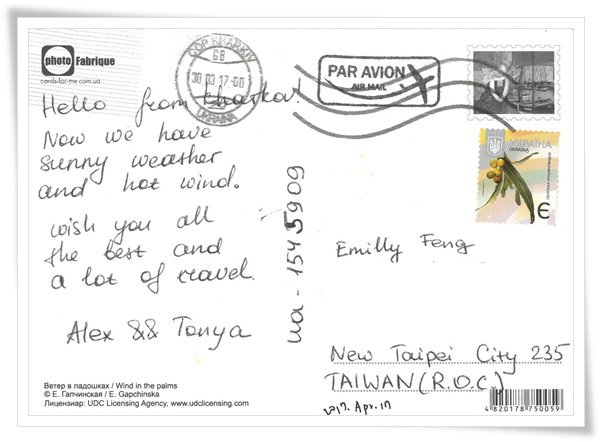 photo Fabrique
cards-for-me.com.ua
Hello from Kharkov!
Now we have
sunny weather
and hot wind.
wish you all
the best and
a lot of travel.
Alex && Tonya
Ветер в ладошках / Wind in the palms
© Е. Гапчинская / E. Gapchinska
Лицензиар: UDC Licensing Agency, www.udclicensing.com
ua-1545909
COP KHARKIV
68
30 03 17-00
UKRAINA
PAR AVION
AIR MAIL
УКРАЇНА
UKRAINA
Є
Emilly Feng
New Taipei City 235
TAIWAN (R.O.C.)
2017. Apr. 17
4 820178 750059